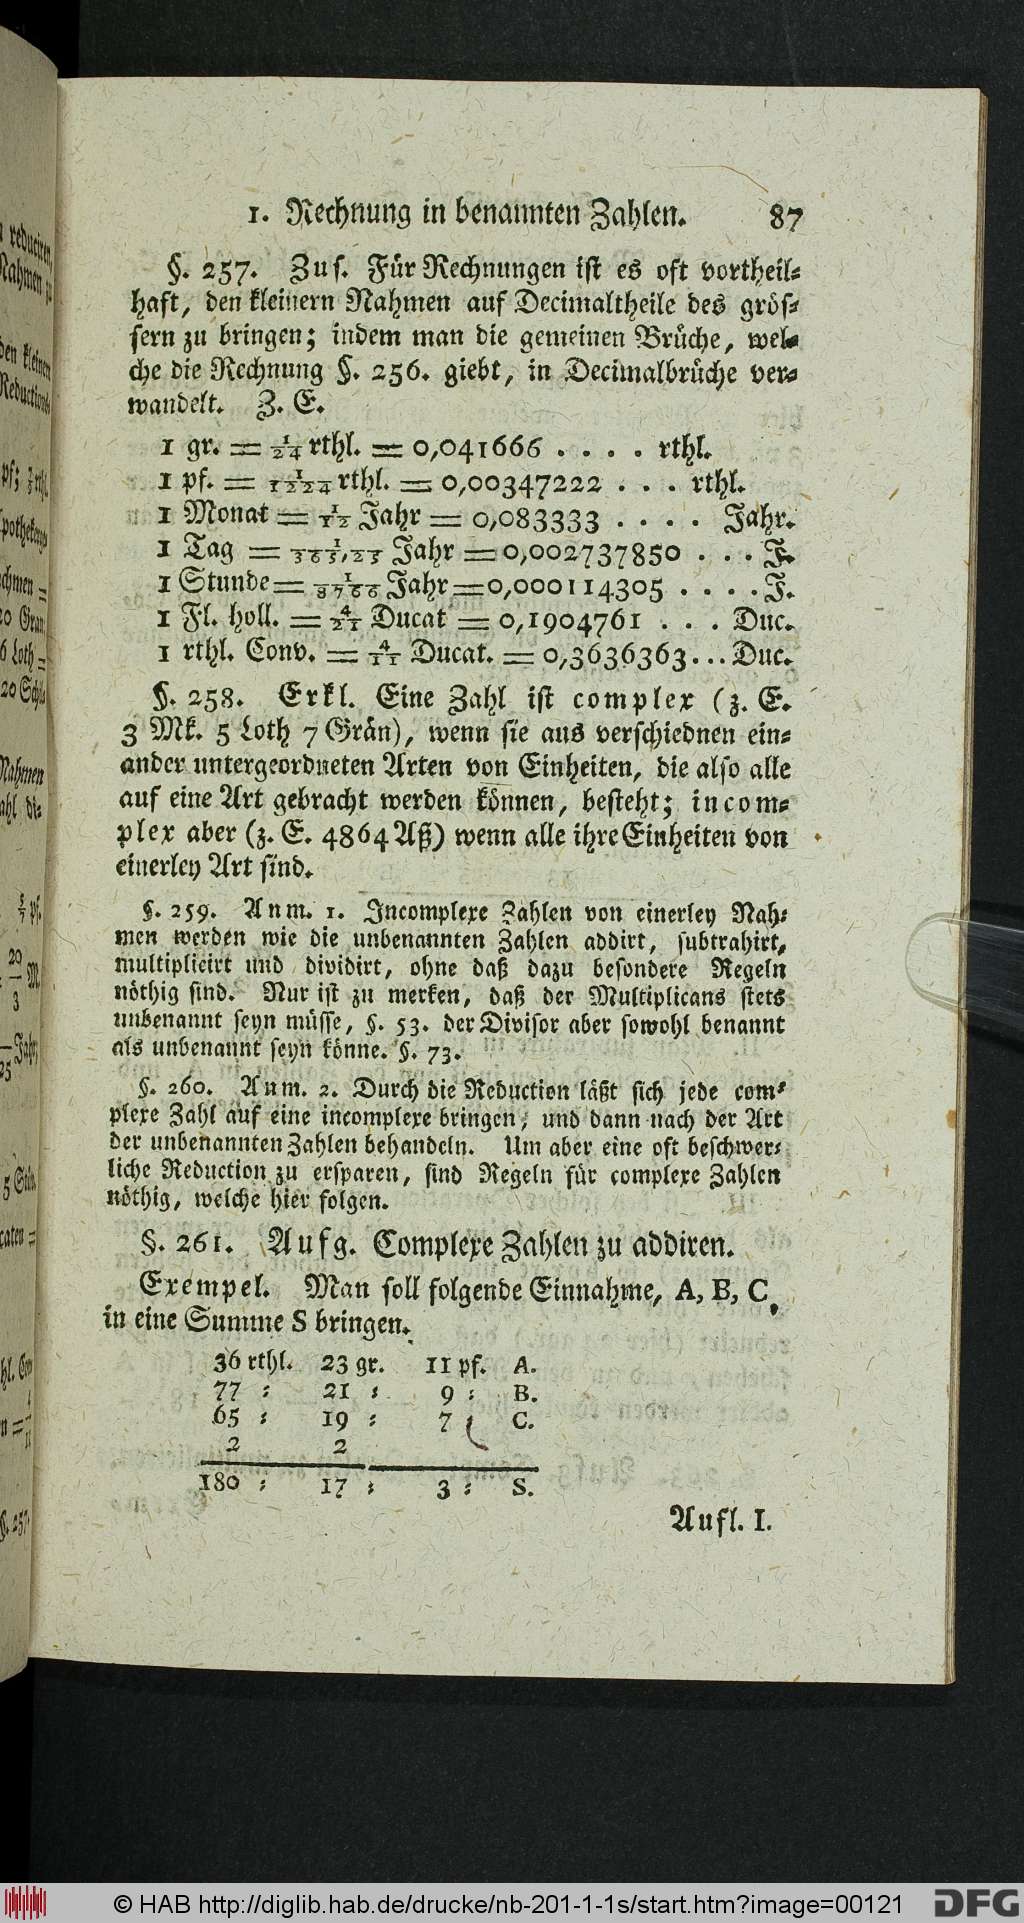 1. Rechnung in benannten Zahlen. 87
§. 257. Zus. Für Rechnungen ist es oft vortheil-
haft, den kleinern Nahmen auf Decimaltheile des grös-
sern zu bringen; indem man die gemeinen Brüche, wel-
che die Rechnung §. 256. giebt, in Decimalbrüche ver-
wandelt. Z. E.
1 gr. = 1/24 rthl. = 0,041666 . . . . rthl.
1 pf. = 1/12 24 rthl. = 0,00347222 . . . rthl.
1 Monat = 1/12 Jahr = 0,083333 . . . . Jahr.
1 Tag = 1/365,25 Jahr = 0,002737850 . . . J.
1 Stunde = 1/8766 Jahr = 0,000114305 . . . . J.
1 Fl. holl. = 4/21 Ducat = 0,1904761 . . . Duc.
1 rthl. Conv. = 4/11 Ducat. = 0,3636363... Duc.
§. 258. Erkl. Eine Zahl ist complex (z. E.
3 Mk. 5 Loth 7 Grän), wenn sie aus verschiednen ein-
ander untergeordneten Arten von Einheiten, die also alle
auf eine Art gebracht werden können, besteht; incom-
plex aber (z. E. 4864 Aß) wenn alle ihre Einheiten von
einerley Art sind.
§. 259. Anm. 1. Incomplexe Zahlen von einerley Nah-
men werden wie die unbenannten Zahlen addirt, subtrahirt,
multiplicirt und dividirt, ohne daß dazu besondere Regeln
nöthig sind. Nur ist zu merken, daß der Multiplicans stets
unbenannt seyn müsse, §. 53. der Divisor aber sowohl benannt
als unbenannt seyn könne. §. 73.
§. 260. Anm. 2. Durch die Reduction läßt sich jede com-
plexe Zahl auf eine incomplexe bringen, und dann nach der Art
der unbenannten Zahlen behandeln. Um aber eine oft beschwer-
liche Reduction zu ersparen, sind Regeln für complexe Zahlen
nöthig, welche hier folgen.
§. 261. Aufg. Complexe Zahlen zu addiren.
Exempel. Man soll folgende Einnahme, A, B, C,
in eine Summe S bringen.
36 rthl. 23 gr. 11 pf. A.
77 : 21 : 9 : B.
65 : 19 : 7 : C.
2 2
180 : 17 : 3 : S.
Aufl. I.
© HAB http://diglib.hab.de/drucke/nb-201-1-1s/start.htm?image=00121 DFG